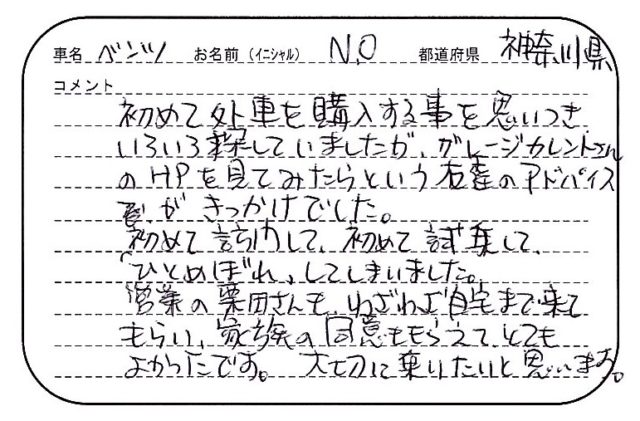 車名 ベンツ お名前（イニシャル） N.O 都道府県 神奈川県
コメント
初めて外車を購入する事を思いつき
いろいろ探していましたが、ガレージカレントさん
のHPを見てみたらという友達のアドバイス
が きっかけでした。
初めて訪問して、初めて試乗して、
「ひとめぼれ」してしまいました。
営業の栗田さんも、わざわざ自宅まで来て
もらい、家族の同意ももらえて、とても
よかったです。 大切に乗りたいと思います。